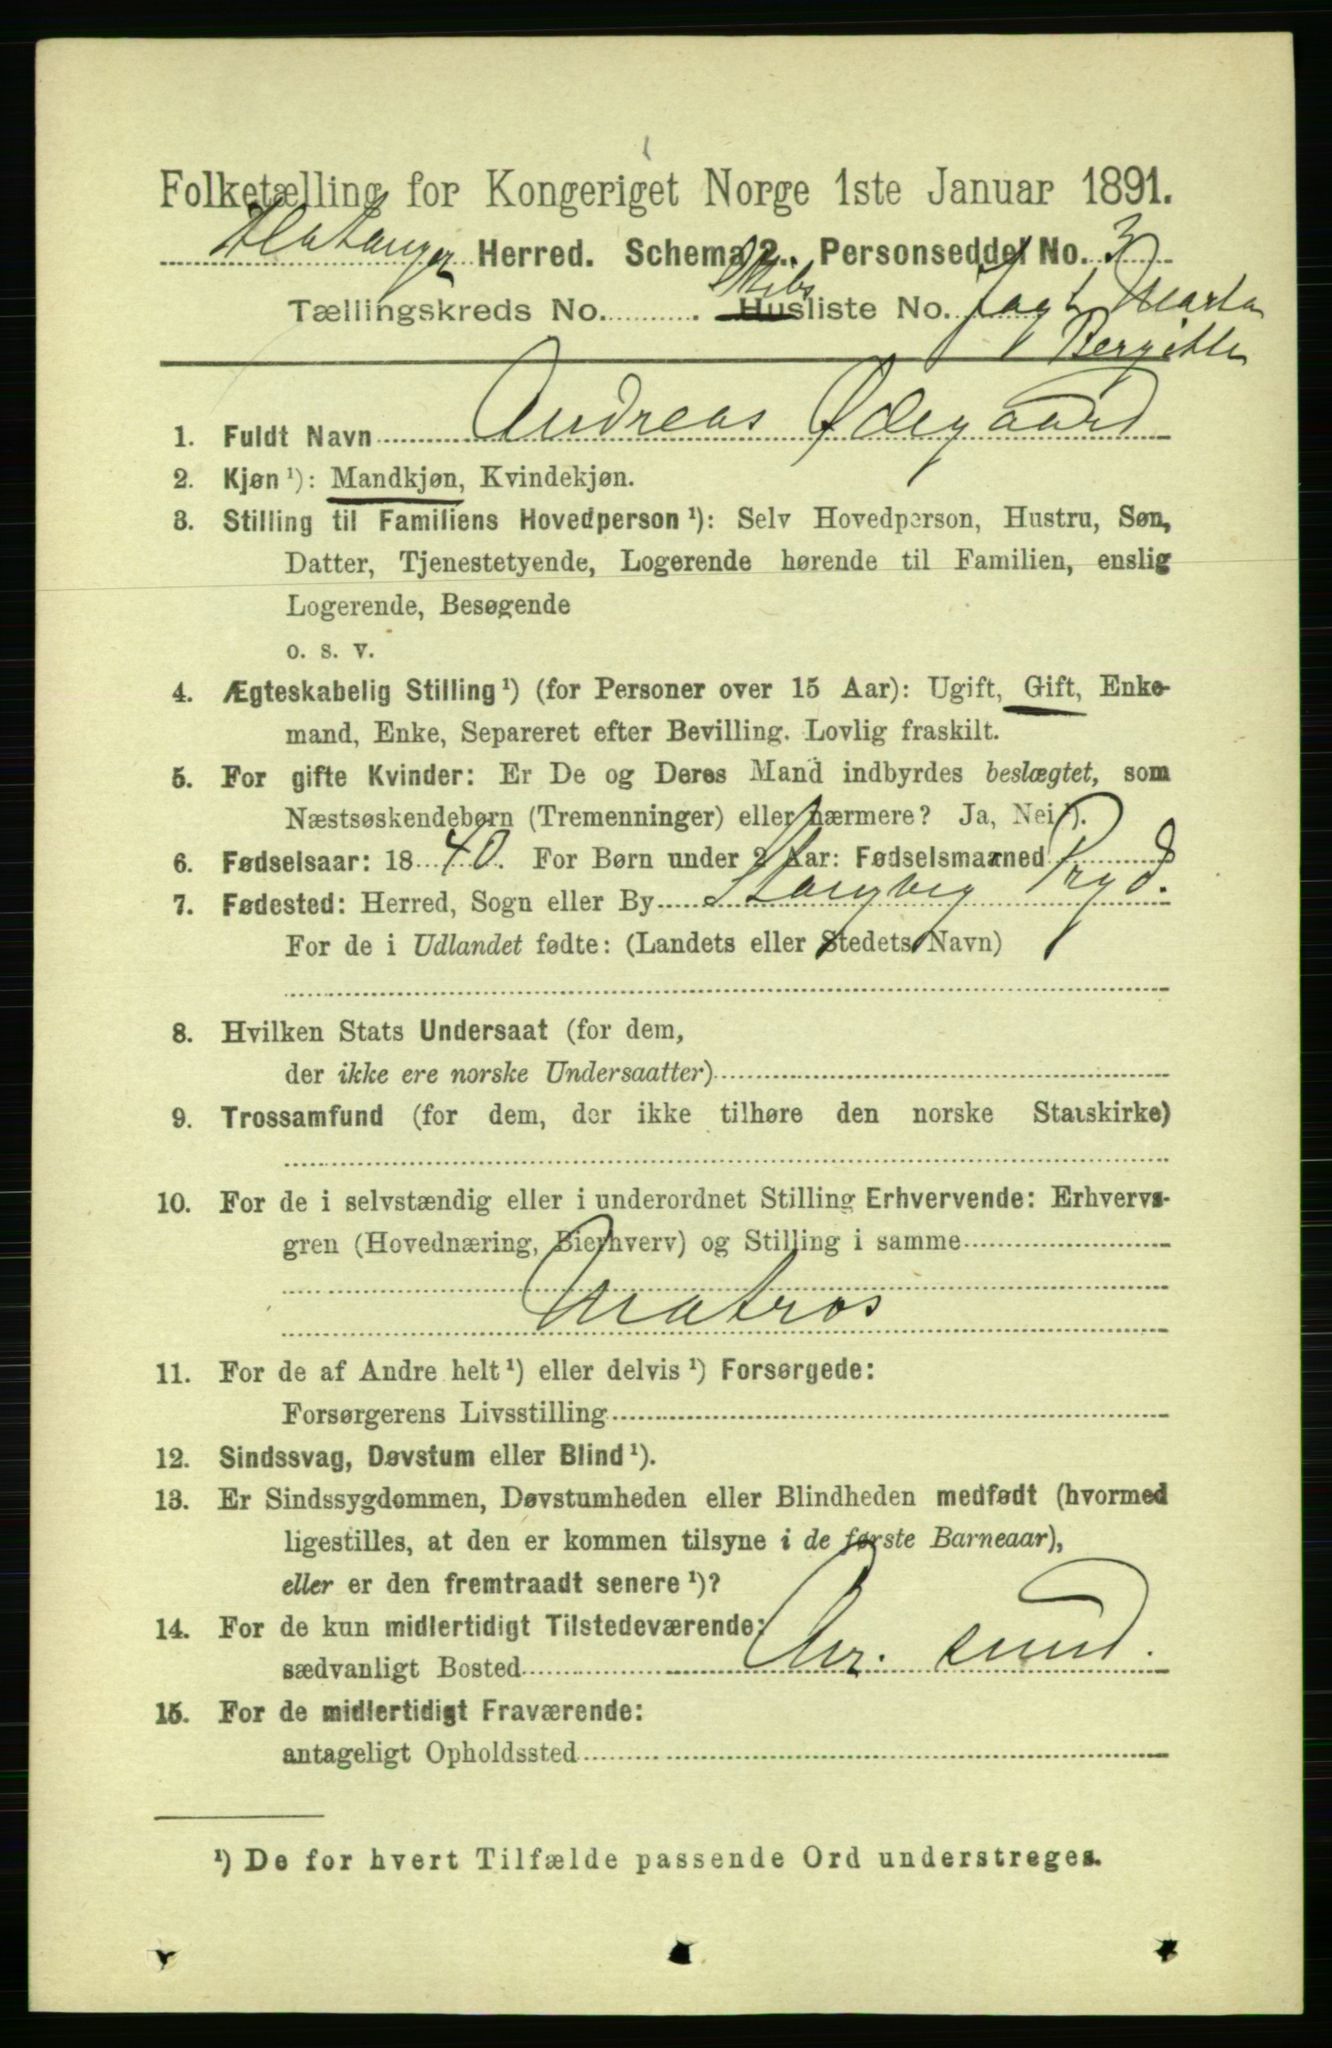 Folketælling for Kongeriget Norge 1ste Januar 1891.
Flatanger Herred. Schema 2. Personseddel No. 3
Tællingskreds No. Skibs Husliste No. Jagt Marta
Bergitte
1. Fuldt Navn Andreas Ødegaard
2. Kjøn¹): Mandkjøn, Kvindekjøn.
3. Stilling til Familiens Hovedperson¹): Selv Hovedperson, Hustru, Søn,
Datter, Tjenestetyende, Logerende hørende til Familien, enslig
Logerende, Besøgende
o. s. v.
4. Ægteskabelig Stilling¹) (for Personer over 15 Aar): Ugift, Gift, Enke-
mand, Enke, Separeret efter Bevilling. Lovlig fraskilt.
5. For gifte Kvinder: Er De og Deres Mand indbyrdes beslægtet, som
Næstsøskendebørn (Tremenninger) eller nærmere? Ja, Nei¹).
6. Fødselsaar: 1840. For Børn under 2 Aar: Fødselsmaaned
7. Fødested: Herred, Sogn eller By Stangvig Prgd.
For de i Udlandet fødte: (Landets eller Stedets Navn)
8. Hvilken Stats Undersaat (for dem,
der ikke ere norske Undersaatter)
9. Trossamfund (for dem, der ikke tilhøre den norske Statskirke)
10. For de i selvstændig eller i underordnet Stilling Erhvervende: Erhvervs-
gren (Hovednæring, Bierhverv) og Stilling i samme
Matros
11. For de af Andre helt¹) eller delvis¹) Forsørgede:
Forsørgerens Livsstilling
12. Sindssvag, Døvstum eller Blind¹).
13. Er Sindssygdommen, Døvstumheden eller Blindheden medfødt (hvormed
ligestilles, at den er kommen tilsyne i de første Barneaar),
eller er den fremtraadt senere¹)?
14. For de kun midlertidigt Tilstedeværende:
sædvanligt Bosted Chr. sund.
15. For de midlertidigt Fraværende:
antageligt Opholdssted
¹) De for hvert Tilfælde passende Ord understreges.